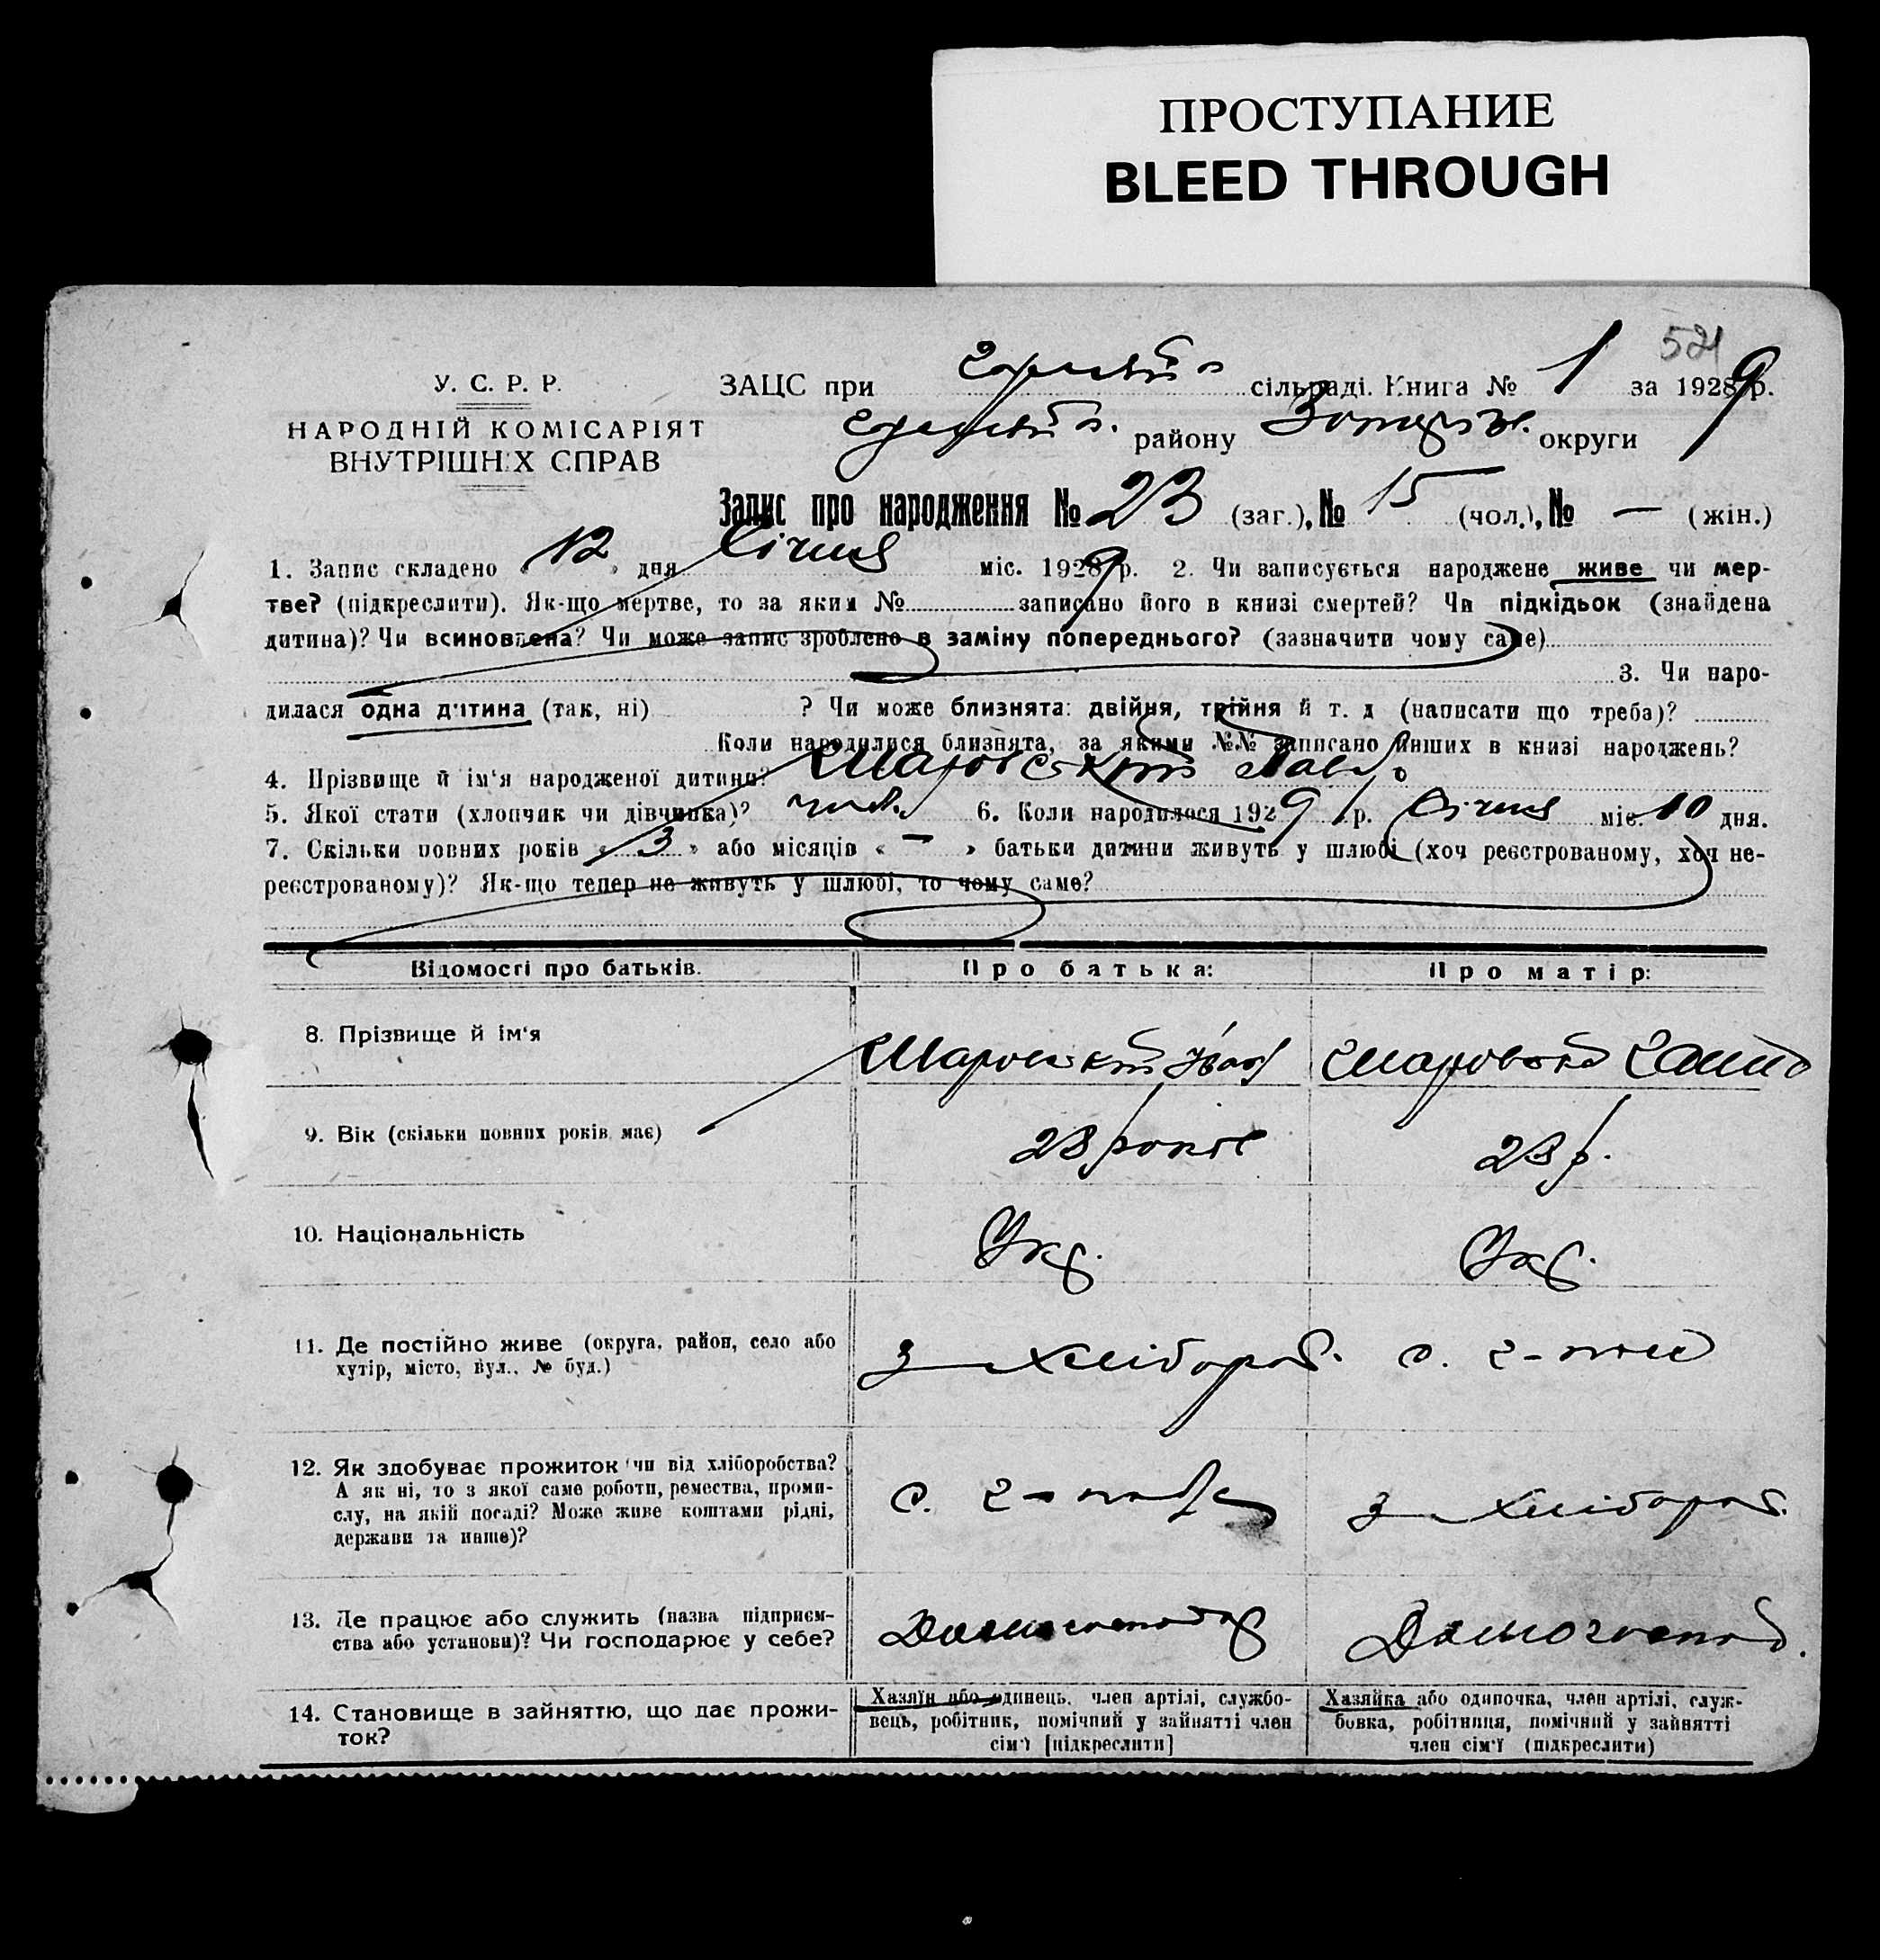 ПРОСТУПАНИЕ
BLEED THROUGH
521
У. С. Р. Р.
НАРОДНІЙ КОМІСАРІЯТ
ВНУТРІШНІХ СПРАВ
ЗАЦС при сільраді. Книга № 1 за 1929 р.
району Запоріж. округи
Запис про народження № 23 (заг.), № 15 (чол.), № — (жін.)
1. Запис складено « 12 » дня Січня міс. 1929 р. 2. Чи записується народжене живе чи мер-
тве? (підкреслити). Як-що мертве, то за яким № записано його в книзі смертей? Чи підкідьок (знайдена
дитина)? Чи всиновлена? Чи може запис зроблено в заміну попереднього? (зазначити чому саме)
3. Чи наро-
дилася одна дитина (так, ні) ? Чи може близнята: двійня, трійня й т. д (написати що треба)?
Коли народилися близнята, за якими №№ записано инших в книзі народжень?
4. Прізвище й ім'я народженої дитини? Шаровський Павло
5. Якої стати (хлопчик чи дівчинка)? 6. Коли народилося 1929 р. Січня міс. 10 дня.
7. Скільки повних років « 3 » або місяців « — » батьки дитини живуть у шлюбі (хоч реєстрованому, хоч не-
реєстрованому)? Як-що тепер не живуть у шлюбі, то чому саме?
Відомості про батьків.
Про батька:
Про матір:
8. Прізвище й ім'я
Шаровський Іван
Шаровська Ганна
9. Вік (скільки повних років має)
28 років
28 р.
10. Національність
Укр.
Укр.
11. Де постійно живе (округа, район, село або
хутір, місто, вул., № буд.)
з хлібороб.
12. Як здобуває прожиток (чи від хліборобства?
А як ні, то з якої саме роботи, ремества, проми-
слу, на якій посаді? Може живе коштами рідні,
держави та инше)?
з хлібороб.
13. Де працює або служить (назва підприєм-
ства або установи)? Чи господарює у себе?
Домогосподар
Домогоспод.
14. Становище в зайняттю, що дає прожи-
ток?
Хазяїн або одинець, член артілі, службо-
вець, робітник, помічний у зайнятті член
сім'ї [підкреслити]
Хазяйка або одиночка, член артілі, служ-
бовка, робітниця, помічний у зайнятті
член сім'ї (підкреслити)